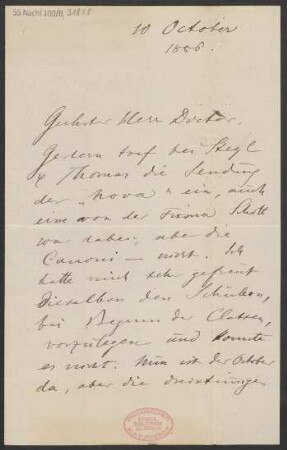 55 Nachl 100/B, 31818
10 October
1886.
Geehrter Herr Doctor.
Gestern traf bei Steyl
& Thomas die Sendung
der „Nova" ein, auch
eine von der Firma Schott
war dabei, aber die
Canoni — nicht. Ich
hätte mich sehr gefreut
dieselben den Schülern,
bei Beginn der Classen,
vorzulegen und konnte
es nicht. Nun ist der October
da, aber die dreistimmigen